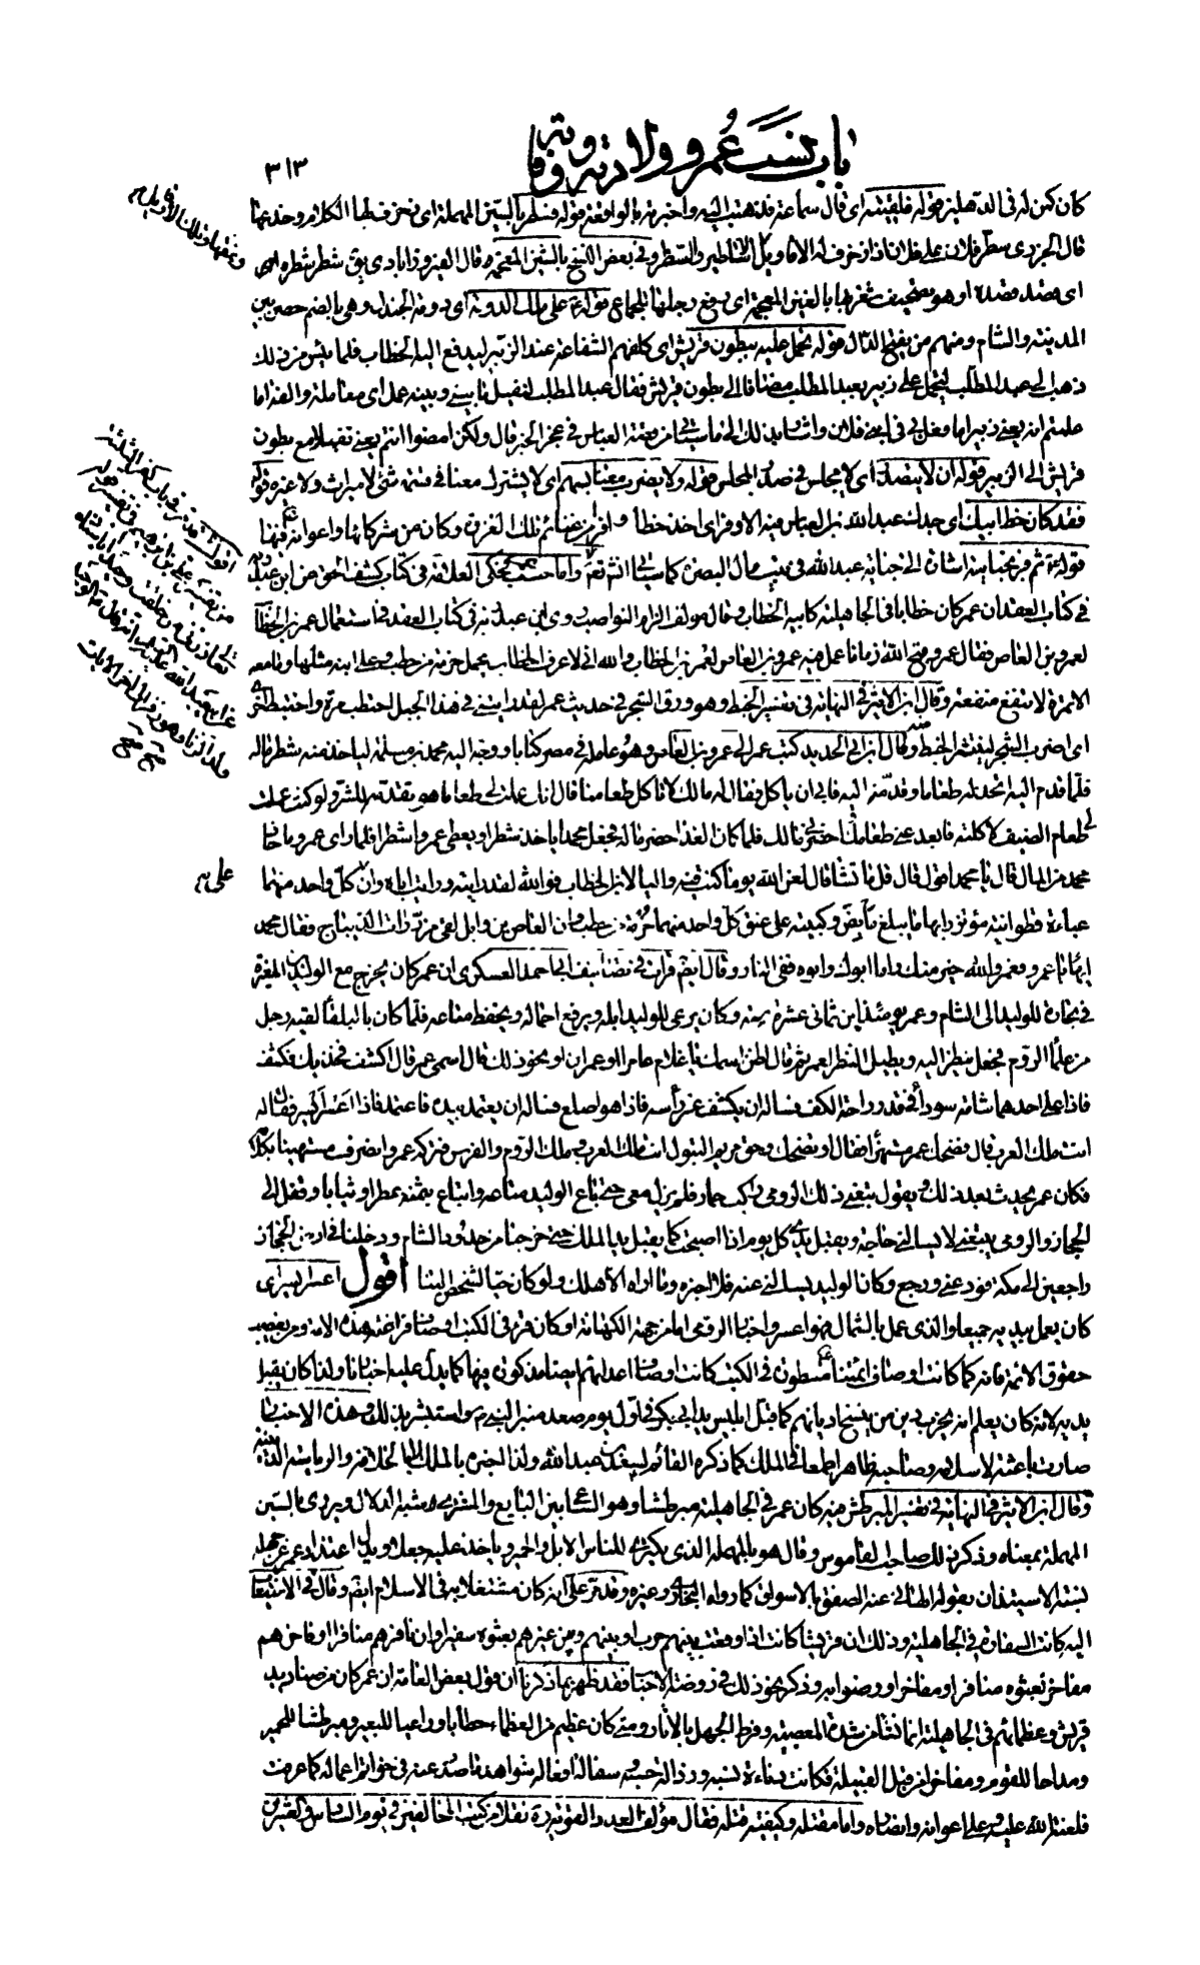 باب نسب عمر وولادته ووفاته
٣١٣
كان كمن له في الدهليز قوله فلقيته اي قال سماعة فذهبت اليه واخبرته بالواقعة قوله فسطر بالسين المهملة اي زخرف لها الكلام وخدعها
قال الجزري سطر فلان على فلان اذا زخرف له الاقاويل الاساطير والسطر وفي بعض النسخ بالشين المعجمة قال الفيروزابادي يق شطر شطره اي
اي قصد قصده او هو تصحيف شغر بها بالغين المعجمة اي رفع رجلها للجماع قوله ع على ملك الدومة اي دومة الجندل وهي بالضم حصن بين
المدينة والشام ومنهم من يفتح الدال قوله تحمل عليه ببطون قريش اي كلفهم الشفاعة عند الزبير ليدفع اليه الخطاب فلما يئس من ذلك
ذهب الى عبد المطلب ليتحمل على زبير بعبد المطلب مضافا الى بطون قريش فقال عبد المطلب لنفيل ما بيني وبينه عمل اي معاملة والفة اما
علمتم انه يعني زبيرا ما فعل بي في ابني فلان واشار بذلك الى ما سيأتي من قصة العباس في عجز الخبر قال ولكن امضوا انتم يعني نفيلا مع بطون
قريش الى الزبير قوله ان لا يتصدر اي لا يجلس في صدر المجلس قوله ولا يضرب معنا بسهم اي لا يشترك معنا في قسمة شئ لا ميراث ولا غيره قوله
فقد كان خطا ابيك اي جدك عبد الله بن العباس فيه الاوفر اي اخذ حظا وافرا من غنائم تلك الغزوة وكان من شركائها واعوانه فيها
قوله ع ثم فر بخيانته اشارة الى خيانة عبد الله في بيت مال البصرة كما سيأتي انش تع واما حسب عمر فحكى العلامة في كتاب كشف الحق عن ابن عبد ربه
في كتاب العقد ان عمر كان حطابا في الجاهلية كابيه الخطاب وقال مؤلف الزام النواصب روى ابن عبد ربه في كتاب العقد في استعمال عمر بن الخطاب
لعمرو بن العاص فقال عمرو قبح الله زمانا عمل فيه عمرو بن العاص لعمر بن الخطاب والله اني لاعرف الخطاب يحمل حزمة من حطب وعلى ابنه مثلها وما معه
الا تمرة لا تنفع منفعة وقال ابن الاثير في النهاية في تفسير الخبط وهو ورق الشجر في حديث عمر لقد رايتني في هذا الجبل احتطب مرة واختبط اخرى
اي اضرب الشجر لينتثر الخبط منه وقال ابن ابي الحديد كتب عمر الى عمرو بن العاص وهو عامله في مصر كتابا ووجه اليه محمد بن مسلمة لياخذ منه شطر ماله
فلما قدم اليه اتخذ له طعاما وقدمه اليه فابى ان ياكل فقال له مالك لا تاكل طعامنا قال انك عملت لي طعاما هو تقدمة للشر ولو كنت عملت
لي طعام الضيف لاكلته فابعد عني طعامك واحضر لي مالك فلما كان الغد احضر ماله فجعل محمد ياخذ شطرا ويعطي عمروا شطرا فلما راى عمرو ما حاز
محمد من المال قال يا محمد اقول قال قل ما تشاء قال لعن الله يوما كنت فيه واليا لابن الخطاب فوالله لقد رايته ورايت اباه وان كل واحد منهما
عباءة قطوانية مؤتزرا بها ما يبلغ مآبض ركبتيه على عنق كل واحد منهما حزمة من حطب وان العاص بن وايل لفي مزررات الديباج فقال محمد
ايها يا عمرو فعمر والله خير منك واما ابوك وابوه ففي النار وقال ايض قرات في تصانيف ابي احمد العسكري ان عمر كان يخرج مع الوليد بن المغيرة
في تجارة للوليد الى الشام وعمر يومئذ ابن ثماني عشرة سنة وكان يرعى للوليد ابله ويرفع احماله ويحفظ متاعه فلما كان بالبلقاء لقيه رجل
من علماء الروم فجعل ينظر اليه ويطيل النظر لعمر ثم قال اظن اسمك يا غلام عامر او عمران او نحو ذلك قال اسمي عمر قال اكشف فخذيك فكشف
فاذا على احدهما شامة سوداء في قدر راحة الكف فساله ان يكشف عن راسه فاذا هو اصلع فساله ان يعتمد بيده فاعتمد فاذا اعسر ايسر فقال له
انت ملك العرب قال فضحك عمر مستهزئا فقال اوتضحك وحق مريم البتول انك ملك العرب وملك الروم والفرس فتركه عمر وانصرف مستهينا بكلامه
فكان عمر يحدث بعد ذلك ويقول تبعني ذلك الرومي راكب حمار فلم يزل معي حتى باع الوليد متاعه وابتاع بثمنه عطرا وثيابا وقفل الى
الحجاز والرومي يتبعني لا يسألني حاجة ويقبل يدي كل يوم اذا اصبحت كما يقبل يد الملك حتى خرجنا من حدود الشام ودخلنا في ارض الحجاز
راجعين الى مكة فودعني ورجع وكان الوليد يسألني عنه فلا اخبره وما اراه الا هلك ولو كان حيا لشخص الينا اقول اعسر يسر اي
كان يعمل بيديه جميعا والذي عمل بالشمال فهو اعسر واخبار الرومي اما من جهة الكهانة او كان قرء في الكتب اوصاف فراعنة هذه الامة ومن يغصب
حقوق الائمة فانه كما كانت اوصاف ائمتنا ع مسطورة في الكتب كانت اوصاف اعدائهم ايضا مذكورة فيها كما يدل عليه اخبارنا ولذا كان يقبل
يديه لانه كان يعلم انه يخرب دين من ينسخ اديانهم كما قبل ابليس يد ابي بكر في اول يوم صعد منبر النبي ص واستبشر بذلك وهذه الاخبار
صارت باعثة لاسلامه وصاحبه ظاهرا طمعا في الملك كما ذكره القائم لسعد بن عبد الله ولذا اخبره بالملك لا بالخلافة والرياسة الدينية
وقال ابن الاثير في النهاية في تفسير المبرطش فيه كان عمر في الجاهلية مبرطشا وهو الساعي بين البايع والمشتري شبه الدلال ويروى بالسين
المهملة بمعناه وذكر ذلك صاحب القاموس وقال هو بالمهملة الذي يكتري للناس الابل والحمير وياخذ عليه جعلا ويدل اعتذار عمر عن جهله
بسنة الاستيذان بقوله الهاني عنه الصفق بالاسواق كما رواه البخاري وغيره وقد مر على انه كان مشتغلا به في الاسلام ايض وقال في الاستيعاب
اليه كانت السفارة في الجاهلية وذلك ان قريشا كانت اذا وقعت بينهم حرب او بينهم وبين غيرهم بعثوه سفيرا وان نافرهم منافر او فاخرهم
مفاخر بعثوه منافرا ومفاخرا ورضوا به وذكر نحو ذلك في روضة الاحباب فقد ظهر بما ذكرنا ان قول بعض العامة ان عمر كان من صناديد
قريش وعظمائهم في الجاهلية انما نشأ من شدة العصبية وفرط الجهل بالآثار ومتى كان عظيم من العظماء حطابا وراعيا للبعير ومبرطشا للحمير
ومداحا للقوم ومفاخرا من قبل القبيلة فكانت دناءة نسبه ورذالة حسبه وسفالة افعاله شواهد ما صدر عنه في خواتم اعماله كما عرفت
فلعنة الله عليه وعلى اعوانه وانصاره واما مقتله وكيفية قتله فقال مؤلف العدد القوية ره نقلا من كتب المخالفين في يوم السادس والعشرين